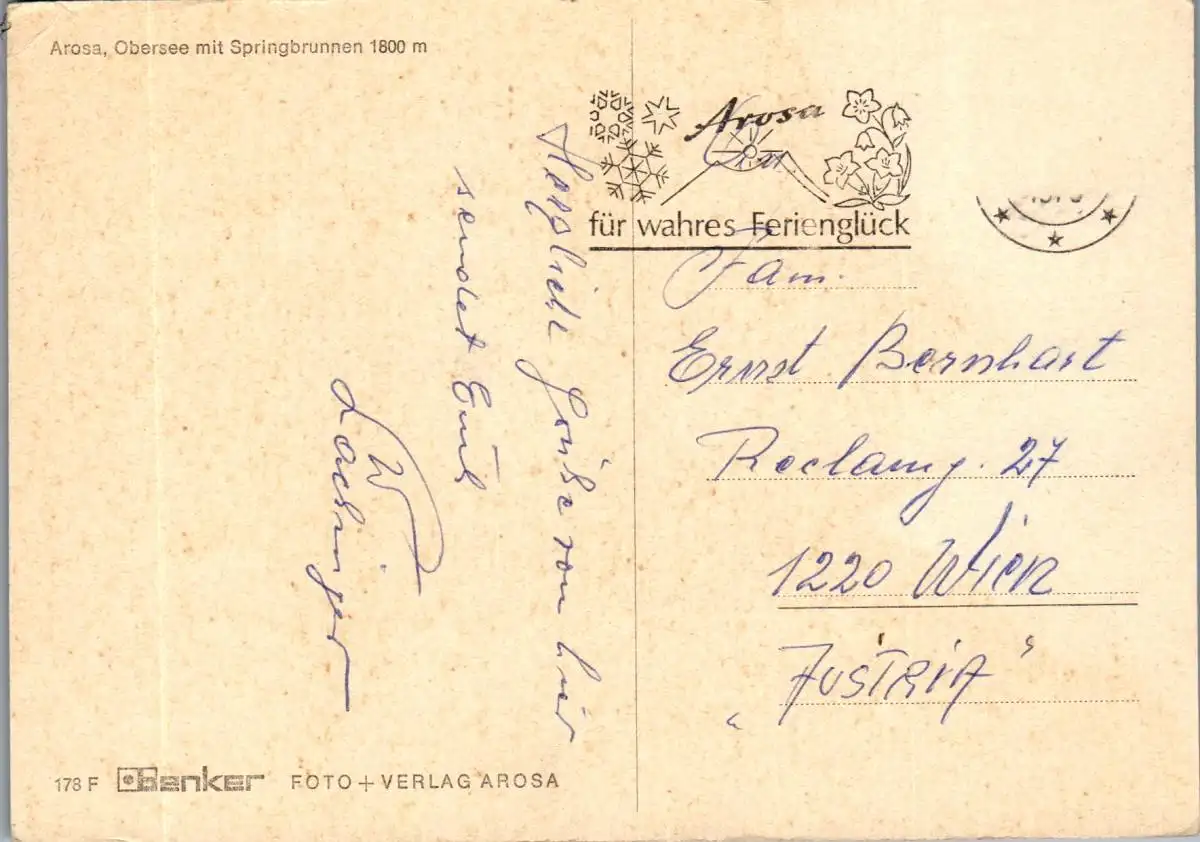 Arosa, Obersee mit Springbrunnen 1800 m
Herzliche Grüße von hier
sendet Euch
W
Lachinger
Arosa
für wahres Ferienglück
Fam.
Ernst Bernhart
Reclamg. 27
1220 Wien
„AUSTRIA"
178 F Benker FOTO + VERLAG AROSA